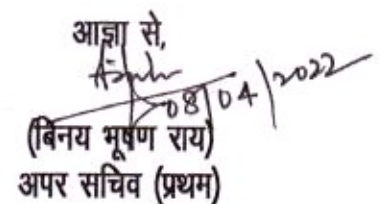 आज्ञा से,
08/04/2022
(बिनय भूषण राय)
अपर सचिव (प्रथम)